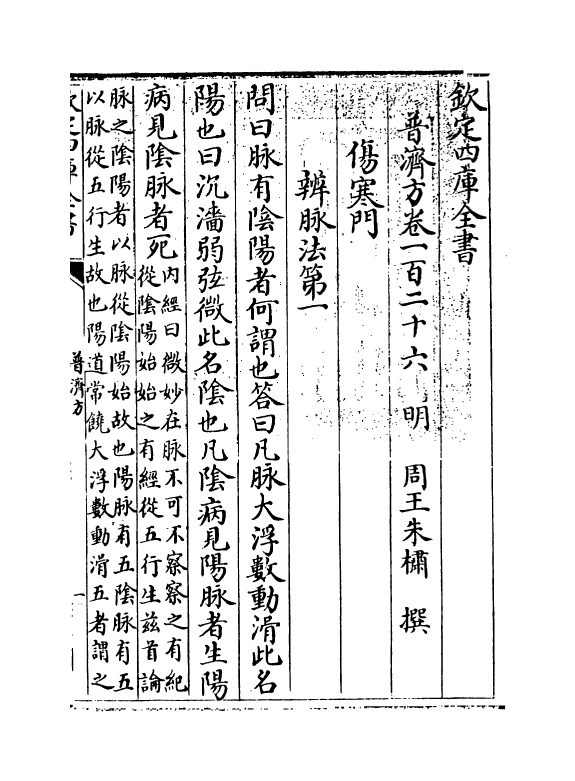 欽定四庫全書
普濟方卷一百二十六 明 周王朱橚 撰
傷寒門
辨脉法第一
問曰脉有陰陽者何謂也荅曰凡脉大浮數動滑此名
陽也曰沉濇弱弦微此名陰也凡隂病見陽脉者生陽
病見陰脉者死
内經曰微妙在脉不可不察察之有紀
從陰陽始始之有經從五行生兹首論
脉之陰陽者以脉從陰陽始故也陽脉有五陰脉有五
以脉從五行生故也陽道常饒大浮數動滑五者謂之
普濟方
一